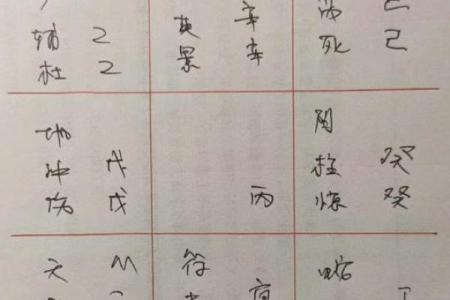 辅 乙
杜 乙
英 辛
景 辛
芮 己
死 己
地
冲 戊
伤 戊
丙
阴
柱 癸
惊 癸
天
符